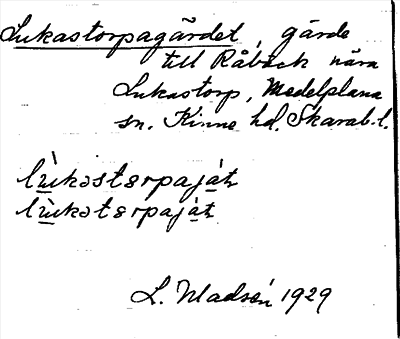 Lukastorpagärdet, gärde
till Råbäck nära
Lukastorp, Medelplana
sn. Kinne hd. Skarab.l.
lùkastɛrpaját
lùkatɛrpaját
L. Madsén 1929